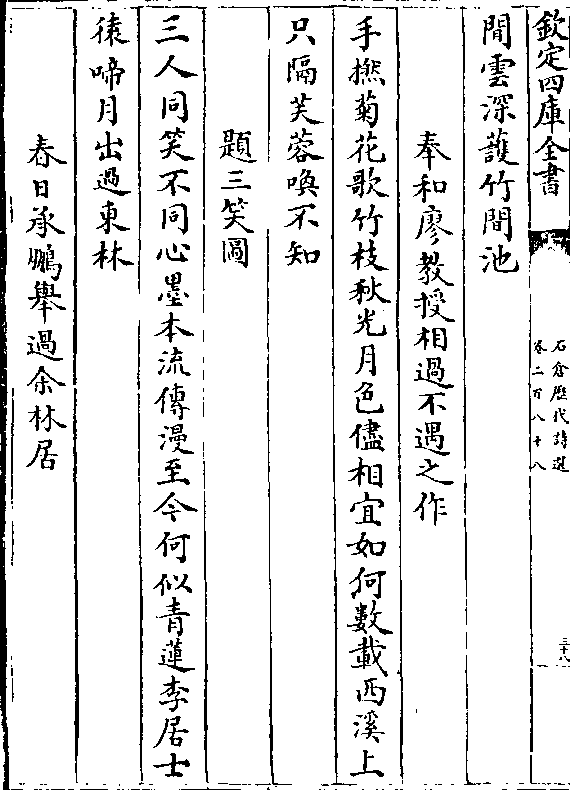 欽定四庫全書
石倉歷代詩選
卷二百八十八
三十八
間雲深䕶竹間池
奉和廖教授相過不遇之作
手撚菊花歌竹枝秋光月色儘相宜如何數載西溪上
只隔芙蓉喚不知
題三笑圖
三人同笑不同心墨本流傳漫至今何似青蓮李居士
猿啼月出過東林
春日承鵬舉過余林居